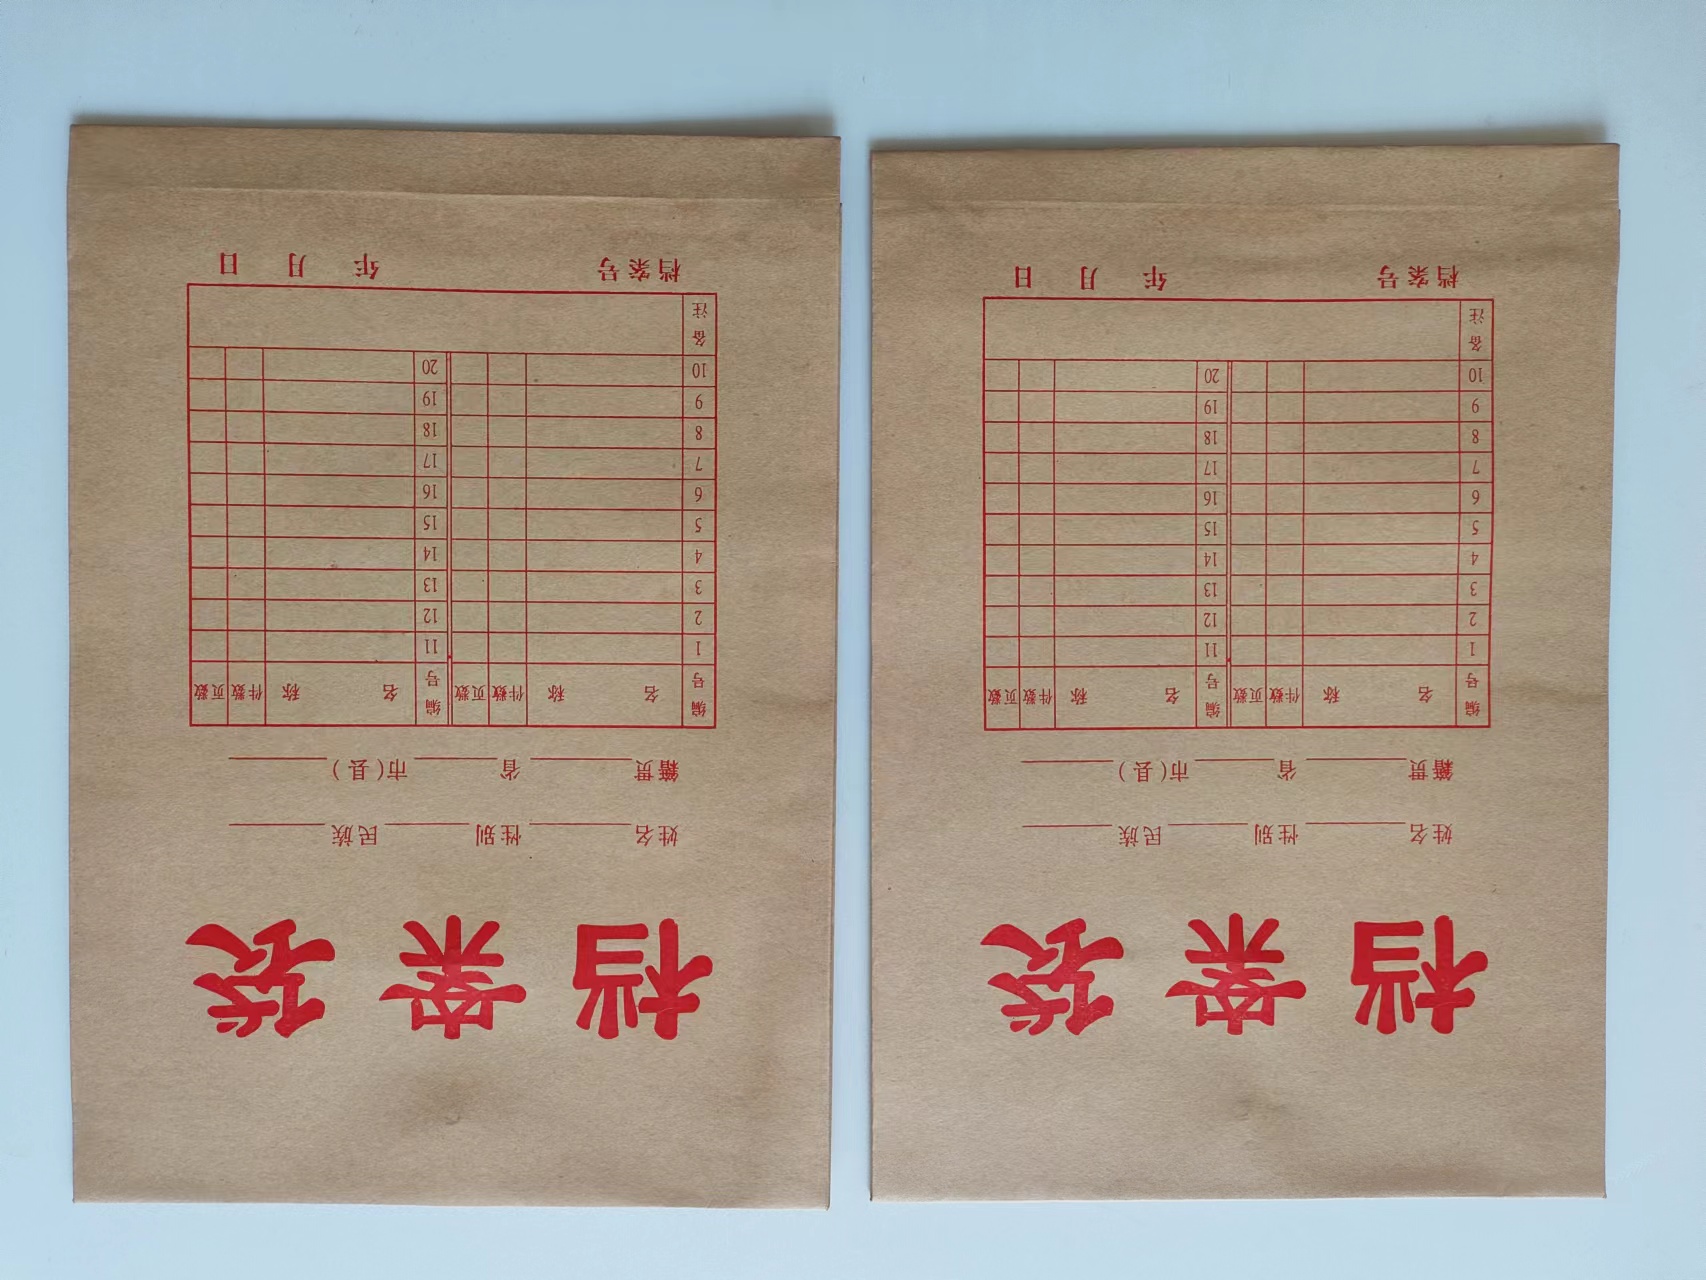 档案袋
姓名______性别______民族______
籍贯______省______市(县)______
编号 名称 件数 页数 编号 名称 件数 页数
1 11
2 12
3 13
4 14
5 15
6 16
7 17
8 18
9 19
10 20
备注
档案号 年 月 日
档案袋
姓名______性别______民族______
籍贯______省______市(县)______
编号 名称 件数 页数 编号 名称 件数 页数
1 11
2 12
3 13
4 14
5 15
6 16
7 17
8 18
9 19
10 20
备注
档案号 年 月 日